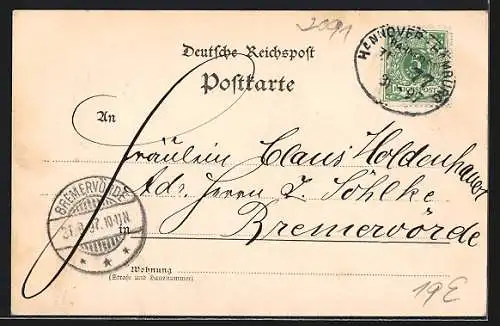 2091
Deutsche Reichspost
Postkarte
HANNOVER-HAMBURG
An
Fräulein Claus Holdenhauer
Adr. Herrn J. Söhlke
BREMERVÖRDE
31.8.97.10-11N
in Bremervörde
Wohnung
(Straße und Hausnummer)
19E